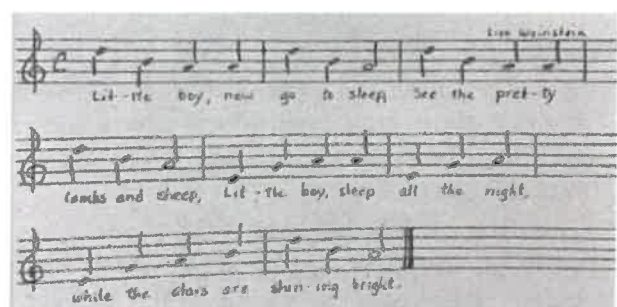 Lisa Weinstein
Lit-tle boy, now go to sleep, See the pret-ty
lambs and sheep, Lit-tle boy, sleep all the night,
while the stars are shin-ing bright.